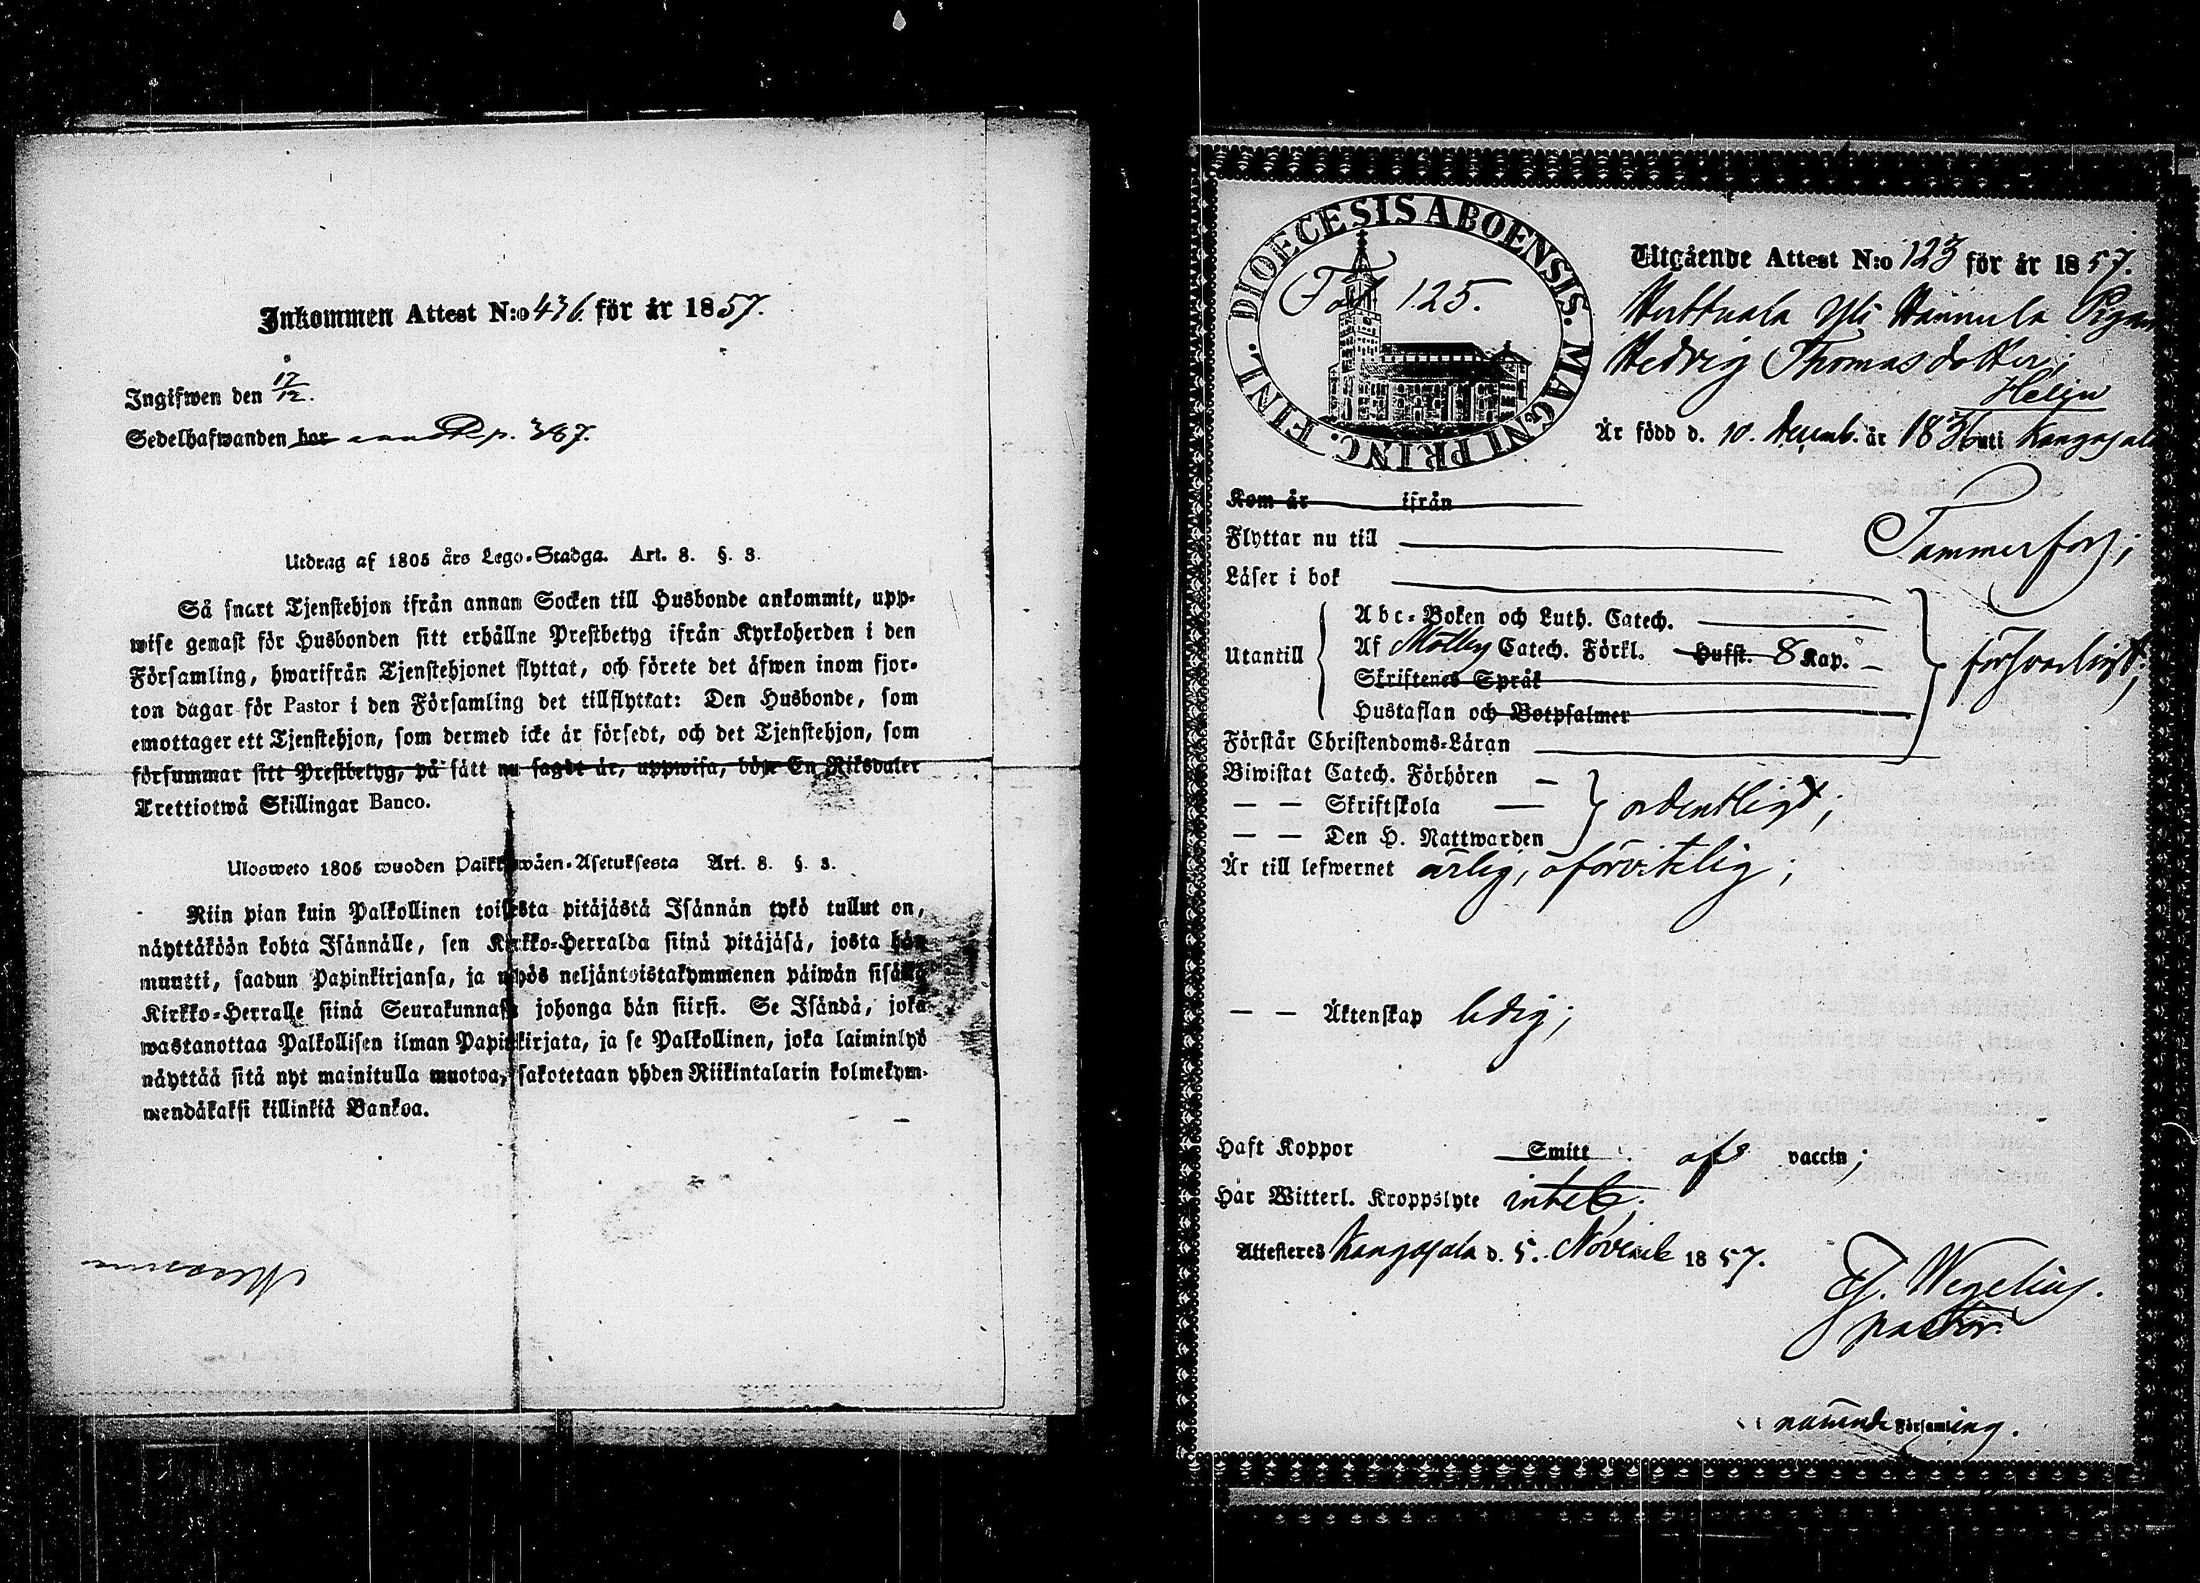 Inkommen Attest N:o 436. för år 1857.
Ingifwen den 17/12.
Sedelhafwanden har p. 387.
Utdrag af 1805 års Lego-Stadga. Art. 8. §. 3.
Så snart Tjenstehjon ifrån annan Socken till Husbonde ankommit, upp-
wise genast för Husbonden sitt erhållne Prestbetyg ifrån Kyrkoherden i den
Församling, hwarifrån Tjenstehjonet flyttat, och förete det äfwen inom fjor-
ton dagar för Pastor i den Församling det tillflyttat: Den Husbonde, som
emottager ett Tjenstehjon, som dermed icke är försedt, och det Tjenstehjon, som
försummar sitt Prestbetyg, på sätt nu sagdt är, uppwisa, böte En Riksdaler
Trettiotwå Skillingar Banco.
Ulosweto 1805 wuoden Palkkawäen-Asetuksesta Art. 8. §. 3.
Niin pian kuin Palkollinen toisesta pitäjästä Isännän tykö tullut on,
näyttäköön kohta Isännälle, sen Kirkko-Herralda siinä pitäjäsä, josta hän
muutti, saadun Papinkirjansa, ja myös neljäntoistakymmenen päiwän sisällä
Kirkko-Herralle siinä Seurakunnasa johonga hän siirsi. Se Isändä, joka
wastanottaa Palkollisen ilman Papinkirjata, ja se Palkollinen, joka laiminlyö
näyttää sitä nyt mainitulla muotoa, sakotetaan yhden Riikintalarin kolmekym-
mendäkaksi killinkiä Bankoa.
DIOECESIS ABOENSIS. MAGNI PRINC. FINL.
Fol. 125.
Utgående Attest N:o 123 för år 1857.
Huttuala Yli Hannula Pigan
Hedvig Thomasdotter;
Helin
Är född d. 10. Decemb. år 1836 uti Kangasala
Kom år ifrån
Flyttar nu till Tammerfors;
Läser i bok
Utantill
Abc-Boken och Luth. Catech.
Af Catech. Förkl. Hufst. 8 Kap.
Skriftenes Språk
Hustaflan och Botpsalmer
försvarligt;
Förstår Christendoms-Läran
Biwistat Catech. Förhören
— — Skriftskola — ordentligt;
— — Den H. Nattwarden
Är till lefwernet ärlig, oförvitelig;
— — Äktenskap ledig;
Haft Koppor Smitt afs vaccin;
Har Witterl. Kroppslyte intet.
Attesteras Kangasala d. 5. Novemb 1857.
Ej. Wegelius.
pastor.
nämnde Församling.